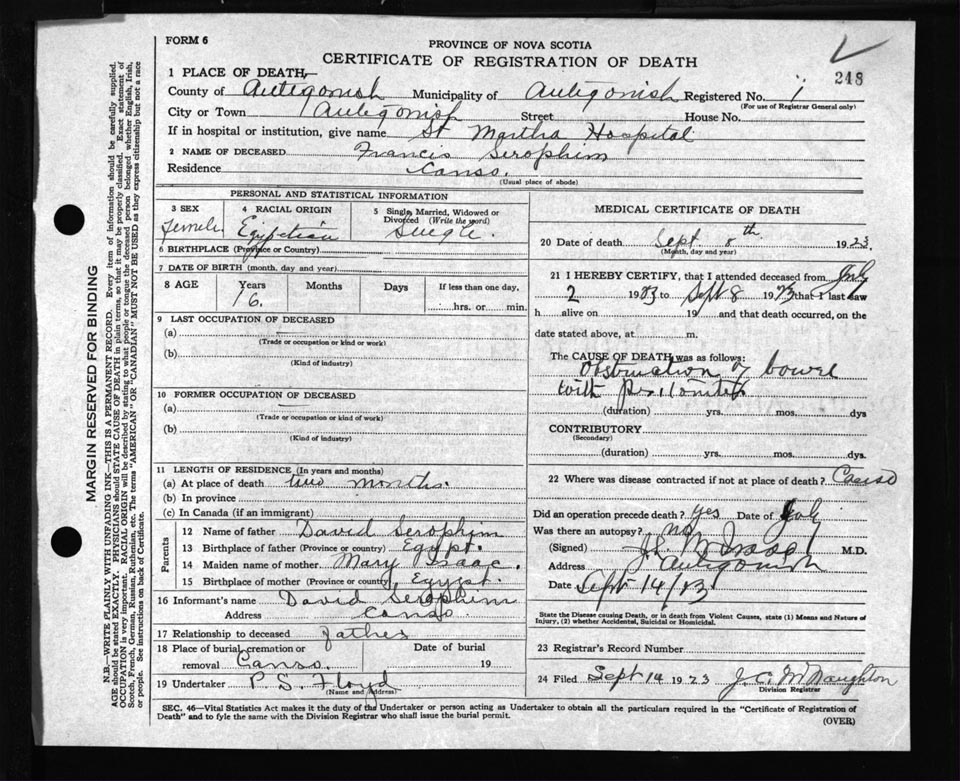 FORM 6
248
PROVINCE OF NOVA SCOTIA
CERTIFICATE OF REGISTRATION OF DEATH
1 PLACE OF DEATH,—
County of Antigonish Municipality of Antigonish Registered No. 1
(For use of Registrar General only)
City or Town Antigonish Street House No.
If in hospital or institution, give name St Martha Hospital
2 NAME OF DECEASED Francis Serophim
Residence Canso.
(Usual place of abode)
PERSONAL AND STATISTICAL INFORMATION
3 SEX 4 RACIAL ORIGIN 5 Single, Married, Widowed or
Divorced (Write the word)
Female Egiptian Single.
6 BIRTHPLACE (Province or Country)
7 DATE OF BIRTH (month, day and year)
8 AGE Years Months Days If less than one day.
16. hrs. or min.
9 LAST OCCUPATION OF DECEASED
(a)
(Trade or occupation or kind or work)
(b)
(Kind of industry)
10 FORMER OCCUPATION OF DECEASED
(a)
(Trade or occupation or kind of work)
(b)
(Kind of industry)
11 LENGTH OF RESIDENCE (In years and months)
(a) At place of death two months.
(b) In province
(c) In Canada (if an immigrant)
Parents
12 Name of father David Serophim
13 Birthplace of father (Province or country) Egypt.
14 Maiden name of mother Mary Isaac.
15 Birthplace of mother (Province or country) Egypt.
16 Informant's name David Serophim
Address Canso
17 Relationship to deceased father
18 Place of burial, cremation or Date of burial
removal Canso. 19
19 Undertaker P. S. Floyd
(Name and Address)
MEDICAL CERTIFICATE OF DEATH
20 Date of death Sept. 8th 1923.
(Month, day and year)
21 I HEREBY CERTIFY, that I attended deceased from July
2 1923 to Sept 8 1923 that I last saw
h alive on 19 and that death occurred, on the
date stated above, at m.
The CAUSE OF DEATH was as follows:
Obstruction of bowel
with
(duration) yrs. mos. dys
CONTRIBUTORY
(Secondary)
(duration) yrs. mos. dys.
22 Where was disease contracted if not at place of death? Canso
Did an operation precede death? yes Date of July
Was there an autopsy? no
(Signed) M.D.
Address Antigonish
Date Sept 14/23
State the Disease causing Death, or in death from Violent Causes, state (1) Means and Nature of
Injury, (2) whether Accidental, Suicidal or Homicidal.
23 Registrar's Record Number
24 Filed Sept 14 1923 J. C. McNaughton
Division Registrar
SEC. 46—Vital Statistics Act makes it the duty of the Undertaker or person acting as Undertaker to obtain all the particulars required in the "Certificate of Registration of
Death" and to fyle the same with the Division Registrar who shall issue the burial permit.
(OVER)
MARGIN RESERVED FOR BINDING
N.B.—WRITE PLAINLY WITH UNFADING INK—THIS IS A PERMANENT RECORD. Every item of information should be carefully supplied.
AGE should be stated EXACTLY. PHYSICIANS should STATE CAUSE OF DEATH in plain terms, so that it may be properly classified. Exact statement of
OCCUPATION is very important. RACIAL ORIGIN will be described by stating to what people or tongue the deceased person belonged whether English, Irish,
Scotch, French, German, Russian, Ruthenian, etc. The terms "AMERICAN" OR "CANADIAN" MUST NOT BE USED as they express citizenship but not a race
or people. See instructions on back of Certificate.